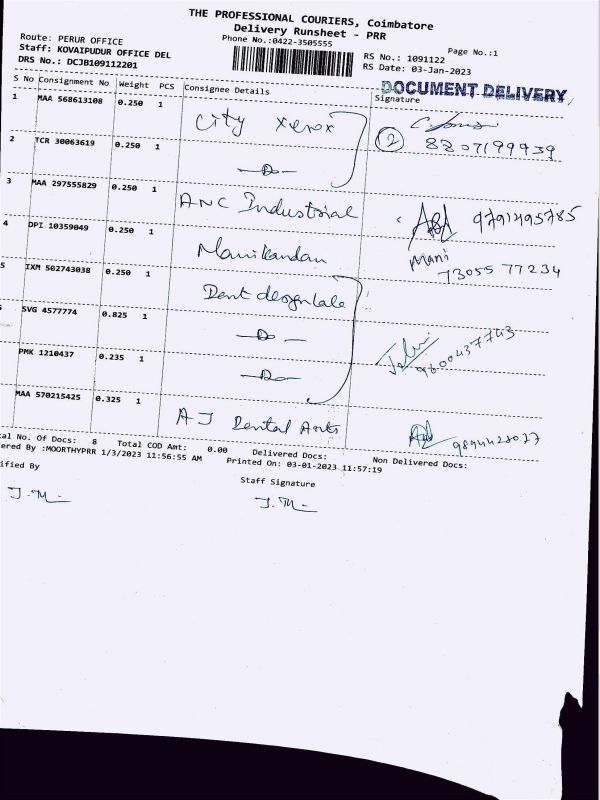 THE PROFESSIONAL COURIERS, Coimbatore
Delivery Runsheet - PRR
Phone No.:0422-3505555
Page No.:1
Route: PERUR OFFICE
Staff: KOVAIPUDUR OFFICE DEL
DRS No.: DCJB109112201
RS No.: 1091122
RS Date: 03-Jan-2023
DOCUMENT DELIVERY
S No Consignment No Weight PCS Consignee Details Signature
1 MAA 568613108 0.250 1 City Xerox
2 8807199939
2 TCR 30063619 0.250 1 -D-
3 MAA 297555829 0.250 1 ANC Industrial 9791495785
4 DPI 10359049 0.250 1 Manikandan Mani 73055 77234
5 IXM 502743038 0.250 1 Dent designlale
SVG 4577774 0.825 1 -D- 9600437743
PMK 1210437 0.235 1 -D-
MAA 570215425 0.325 1 AJ Dental Arts 9894428027
al No. Of Docs: 8 Total COD Amt: 0.00 Delivered Docs: Non Delivered Docs:
ered By :MOORTHYPRR 1/3/2023 11:56:55 AM Printed On: 03-01-2023 11:57:19
ified By Staff Signature
J.M. J.M.